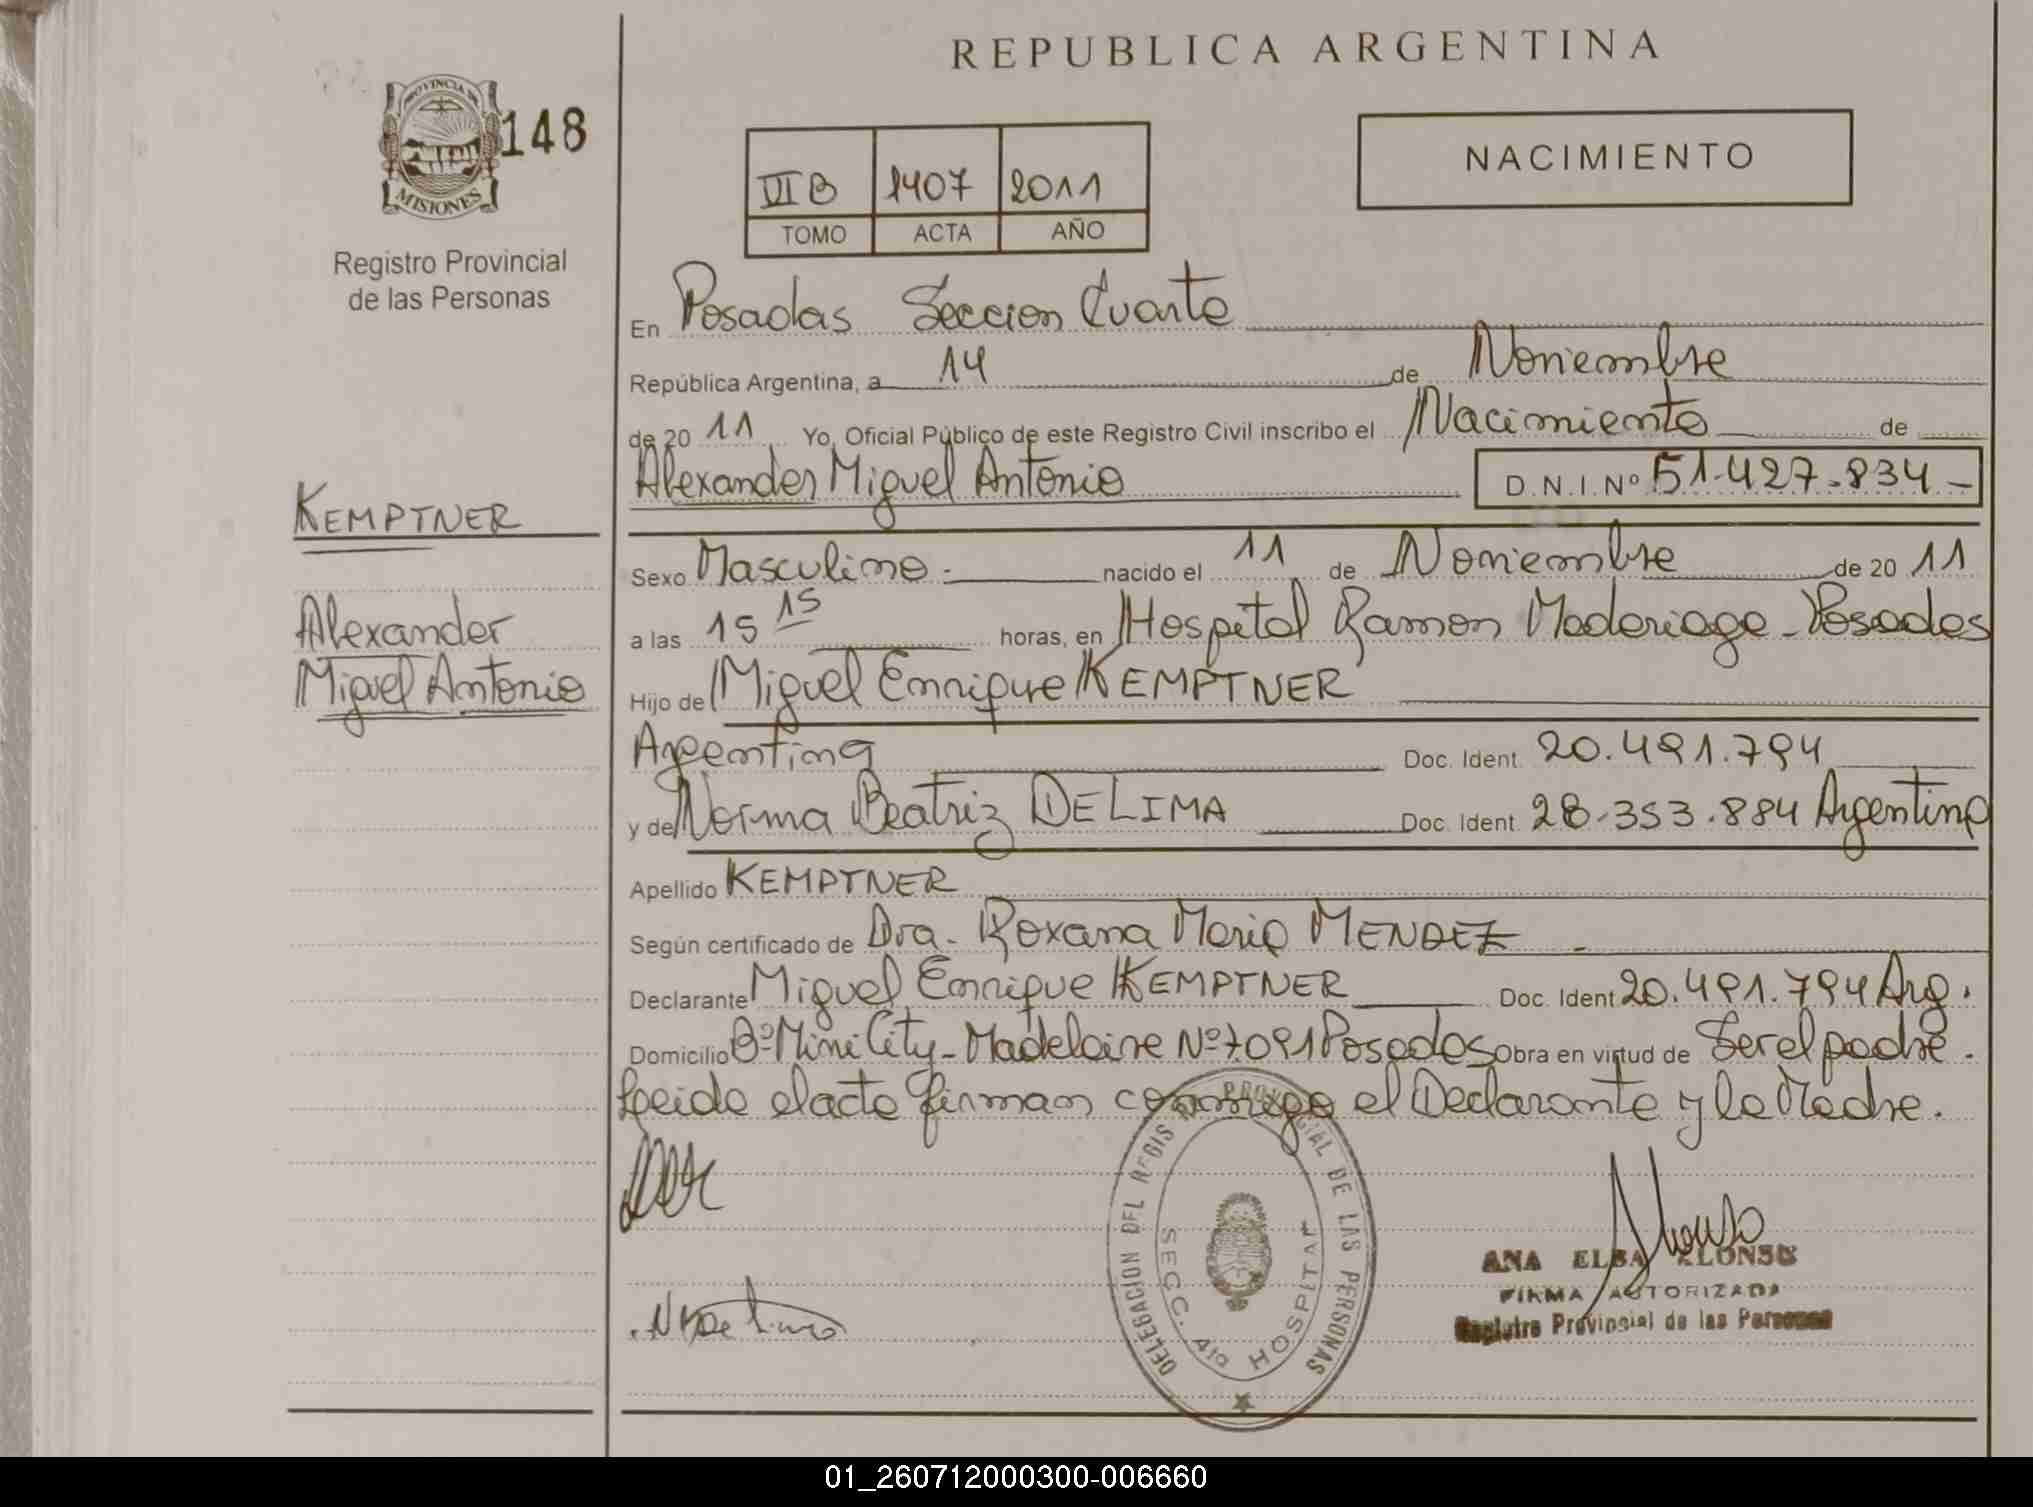 REPUBLICA ARGENTINA
PROVINCIA DE
MISIONES
148
Registro Provincial
de las Personas
VI B 1407 2011
TOMO ACTA AÑO
NACIMIENTO
En Posadas Seccion Cuarta
República Argentina, a 14 de Noviembre
de 20 11 Yo, Oficial Público de este Registro Civil inscribo el Nacimiento de
Alexander Miguel Antonio D.N.I. Nº 51.427.834-
KEMPTNER
Alexander
Miguel Antonio
Sexo Masculino. nacido el 11 de Noviembre de 20 11
a las 15 15 horas, en Hospital Ramon Madariaga - Posadas
Hijo de Miguel Enrique KEMPTNER
Argentina Doc. Ident. 20.491.794
y de Norma Beatriz DE LIMA Doc. Ident. 28.353.884 Argentina
Apellido KEMPTNER
Según certificado de Dra. Roxana Maria MENDEZ -
Declarante Miguel Enrique KEMPTNER Doc. Ident 20.491.794 Arg.
Domicilio Bº Mini City - Madelaire Nº 7091 Posadas Obra en virtud de Ser el padre.
Leida el acta firman conmigo el Declarante y la Madre.
DELEGACION DEL REGISTRO PROVINCIAL DE LAS PERSONAS
SECC. 4ta HOSPITAL
ANA ELBA ALONSO
FIRMA AUTORIZADA
Registro Provincial de las Personas
01_260712000300-006660